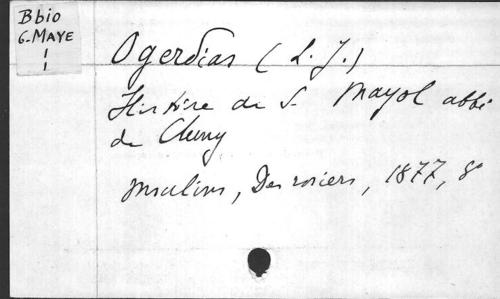 Bbio
G.MAYE
Ogerdias (L. J.)
Histoire de S. Mayol abbé
de Cluny
Moulins, Desrosiers, 1877, 8°